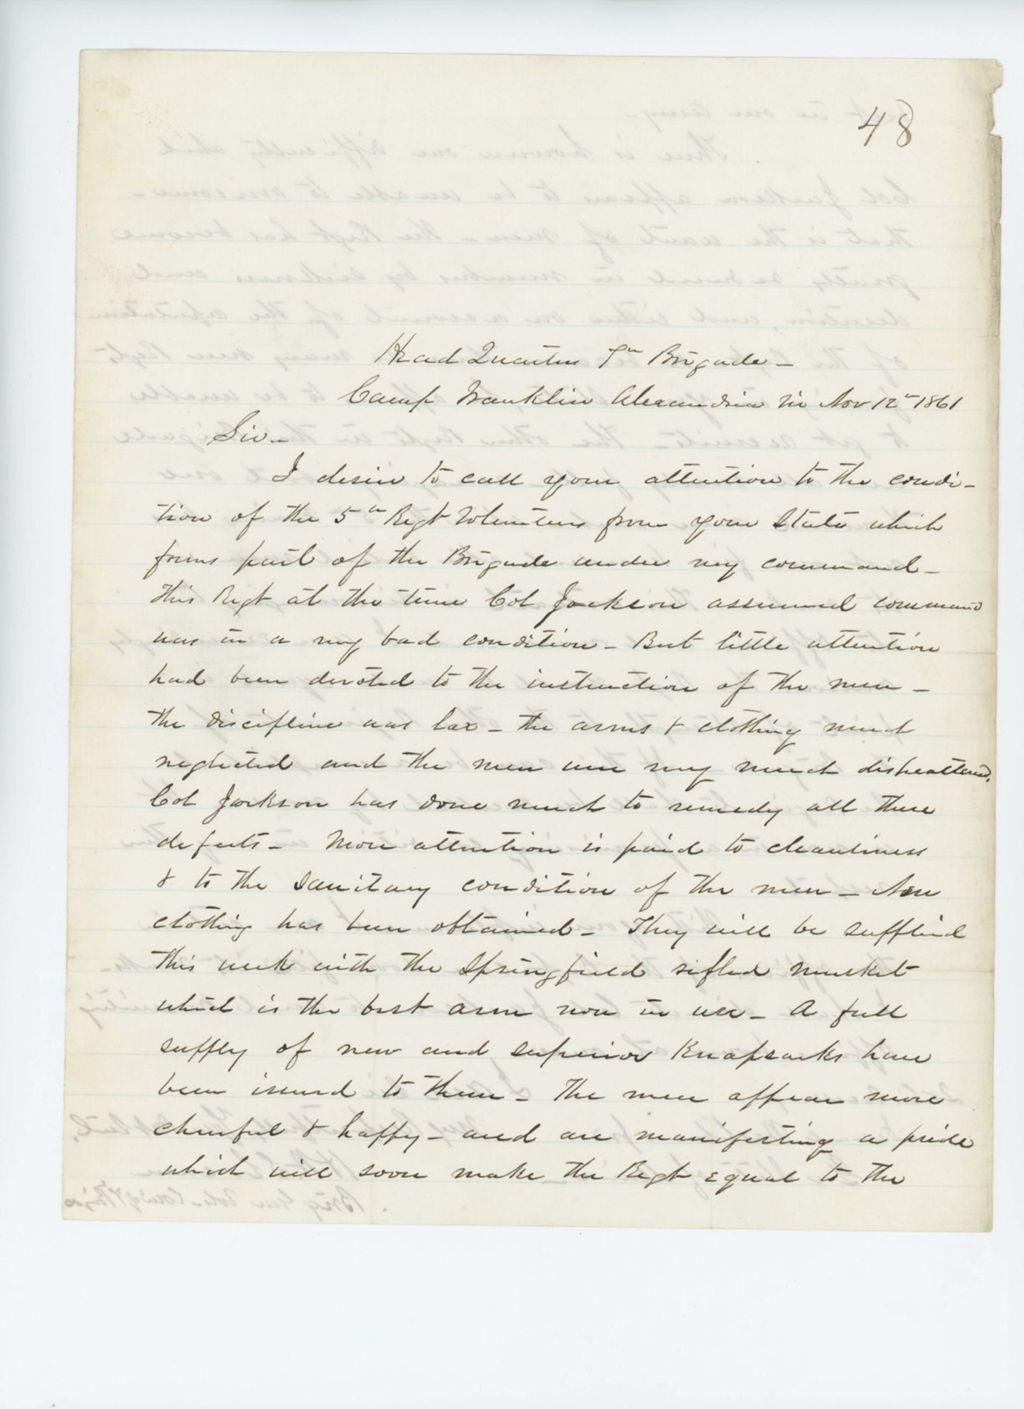 48
Head Quarters 7th Brigade -
Camp Franklin Alexandria Nov 12th 1861
Sir -
I desire to call your attention to the condi-
tion of the 5th Regt Volunteers from your State which
forms part of the Brigade under my command -
This Regt at the time Col Jackson assumed command
was in a very bad condition - But little attention
had been devoted to the instruction of the men -
the discipline was lax - the arms & clothing much
neglected and the men were very much disheartened.
Col Jackson has done much to remedy all these
defects - More attention is paid to cleanliness
& to the sanitary condition of the men - New
clothing has been obtained - They will be supplied
this week with the Springfield rifled musket
which is the best arm now in use - A full
supply of new and superior Knapsacks have
been issued to them - The men appear more
cheerful & happy - and are manifesting a pride
which will soon make the Regt equal to the